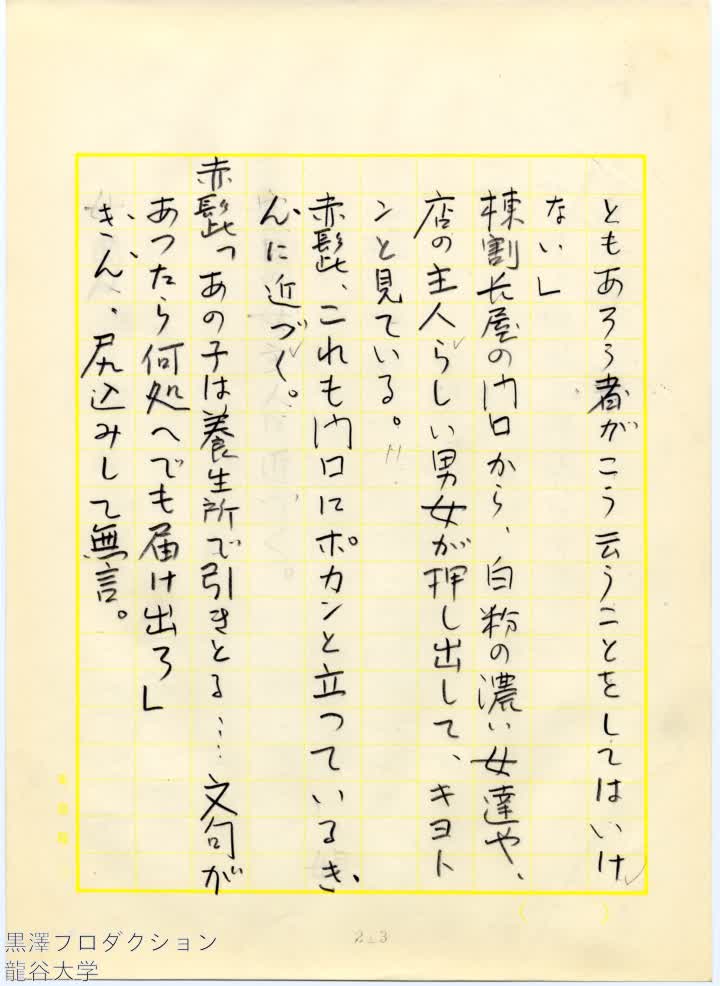 ともあろう者がこう云うことをしてはいけ
ない」
棟割長屋の門口から、白粉の濃い女達や、
店の主人らしい男女が押し出して、キヨト
ンと見ている。
赤髭、これも門口にポカンと立つているき、
ん、に近づく。
赤髭「あの子は養生所で引きとる…文句が
あつたら何処へでも届け出ろ」
き、ん、、尻込みして無言。
223
黒澤プロダクション
龍谷大学